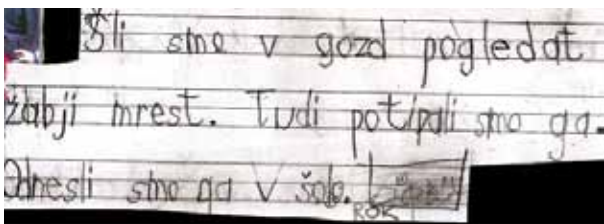 Šli smo v gozd pogledat
žabji mrest. Tudi potipali smo ga.
Odnesli smo ga v šolo.
ROK